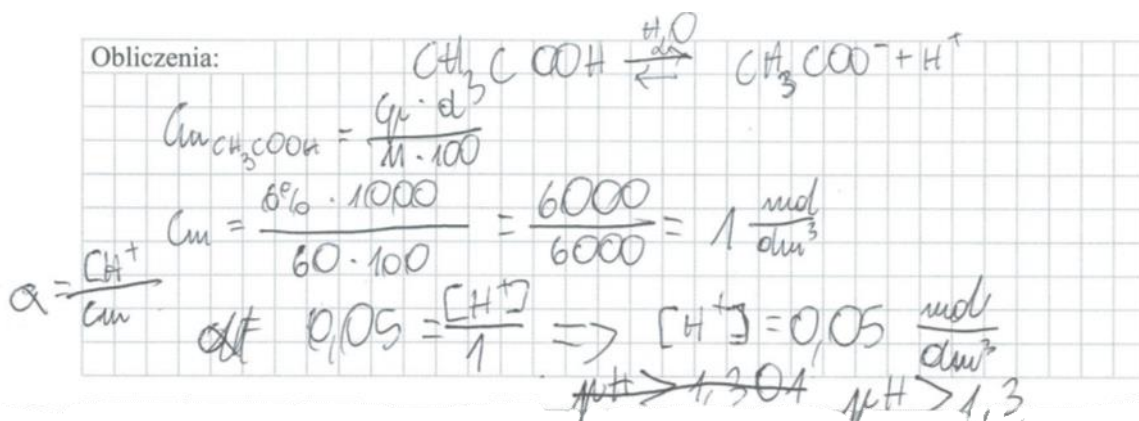 Obliczenia: CH₃COOH ⇄ CH₃COO⁻ + H⁺
H₂O
Cm CH₃COOH = Cp · d / M · 100
Cm = 6% · 1000 / 60 · 100 = 6000 / 6000 = 1 mol/dm³
α = CH⁺ / Cm
0,05 = [H⁺] / 1 => [H⁺] = 0,05 mol/dm³
pH > 1,301 pH > 1,3